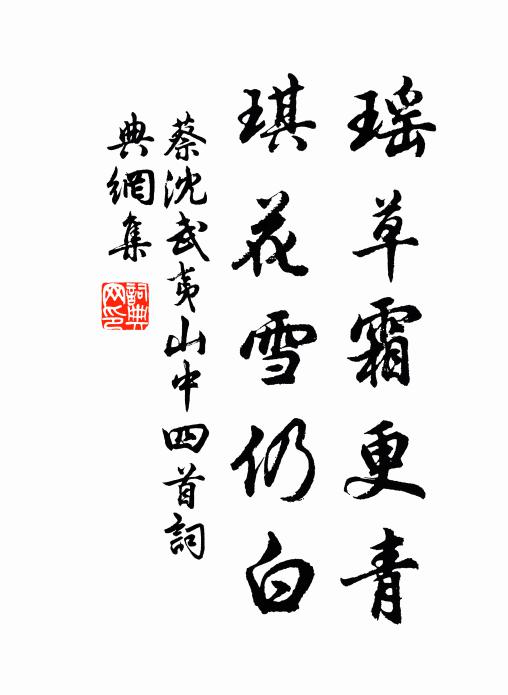 瑶草霜更青
琪花雪仍白
蔡沈武夷山中四首詞
典網集
詞典
网印